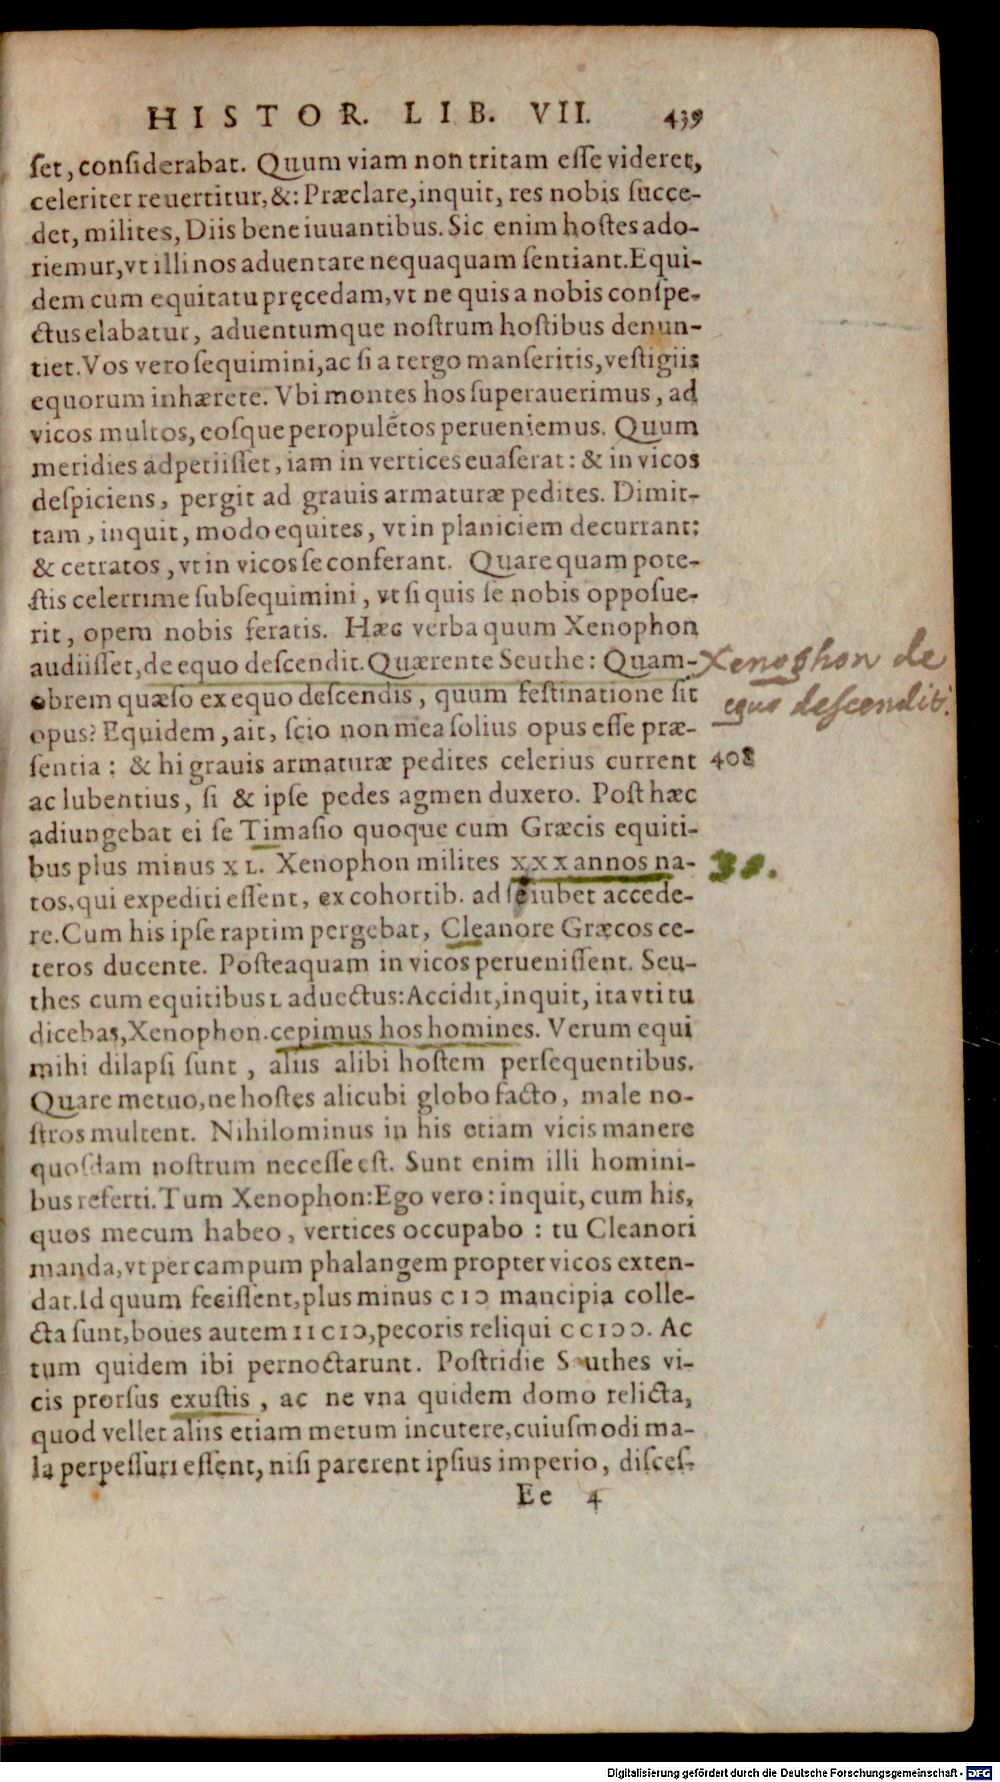 HISTOR. LIB. VII. 439
ſet, conſiderabat. Quum viam non tritam eſſe videret,
celeriter reuertitur, &: Præclare, inquit, res nobis ſucce-
det, milites, Diis bene iuuantibus. Sic enim hoſtes ado-
riemur, vt illi nos aduentare nequaquam ſentiant. Equi-
dem cum equitatu pręcedam, vt ne quis a nobis conſpe-
ctus elabatur, aduentumque noſtrum hoſtibus denun-
tiet. Vos vero ſequimini, ac ſi a tergo manſeritis, veſtigiis
equorum inhærete. Vbi montes hos ſuperauerimus, ad
vicos multos, eoſque peropulētos perueniemus. Quum
meridies adpetiiſſet, iam in vertices euaſerat: & in vicos
deſpiciens, pergit ad grauis armaturæ pedites. Dimit-
tam, inquit, modo equites, vt in planiciem decurrant:
& cetratos, vt in vicos ſe conferant. Quare quam pote-
ſtis celerrime ſubſequimini, vt ſi quis ſe nobis oppoſue-
rit, opem nobis feratis. Hæc verba quum Xenophon
audiiſſet, de equo deſcendit. Quærente Seuthe: Quam-
obrem quæſo ex equo deſcendis, quum feſtinatione ſit
opus? Equidem, ait, ſcio non mea ſolius opus eſſe præ-
ſentia: & hi grauis armaturæ pedites celerius current
ac lubentius, ſi & ipſe pedes agmen duxero. Poſt hæc
adiungebat ei ſe Timaſio quoque cum Græcis equiti-
bus plus minus XL. Xenophon milites XXX annos na-
tos, qui expediti eſſent, ex cohortib. ad ſe iubet accede-
re. Cum his ipſe raptim pergebat, Cleanore Græcos ce-
teros ducente. Poſteaquam in vicos perueniſſent. Seu-
thes cum equitibus L aduectus: Accidit, inquit, ita vti tu
dicebas, Xenophon. cepimus hos homines. Verum equi
mihi dilapſi ſunt, aliis alibi hoſtem perſequentibus.
Quare metuo, ne hoſtes alicubi globo facto, male no-
ſtros multent. Nihilominus in his etiam vicis manere
quoſdam noſtrum neceſſe eſt. Sunt enim illi homini-
bus referti. Tum Xenophon: Ego vero: inquit, cum his,
quos mecum habeo, vertices occupabo: tu Cleanori
manda, vt per campum phalangem propter vicos exten-
dat. Id quum feciſſent, plus minus CIↃ mancipia colle-
cta ſunt, boues autem IICIↃ, pecoris reliqui CCIↃↃ. Ac
tum quidem ibi pernoctarunt. Poſtridie Seuthes vi-
cis prorſus exuſtis, ac ne vna quidem domo relicta,
quod vellet aliis etiam metum incutere, cuiuſmodi ma-
la perpeſſuri eſſent, niſi parerent ipſius imperio, diſceſ-
Ee 4
Xenophon de
equo deſcendit.
408
30.
Digitalisierung gefördert durch die Deutsche Forschungsgemeinschaft - DFG